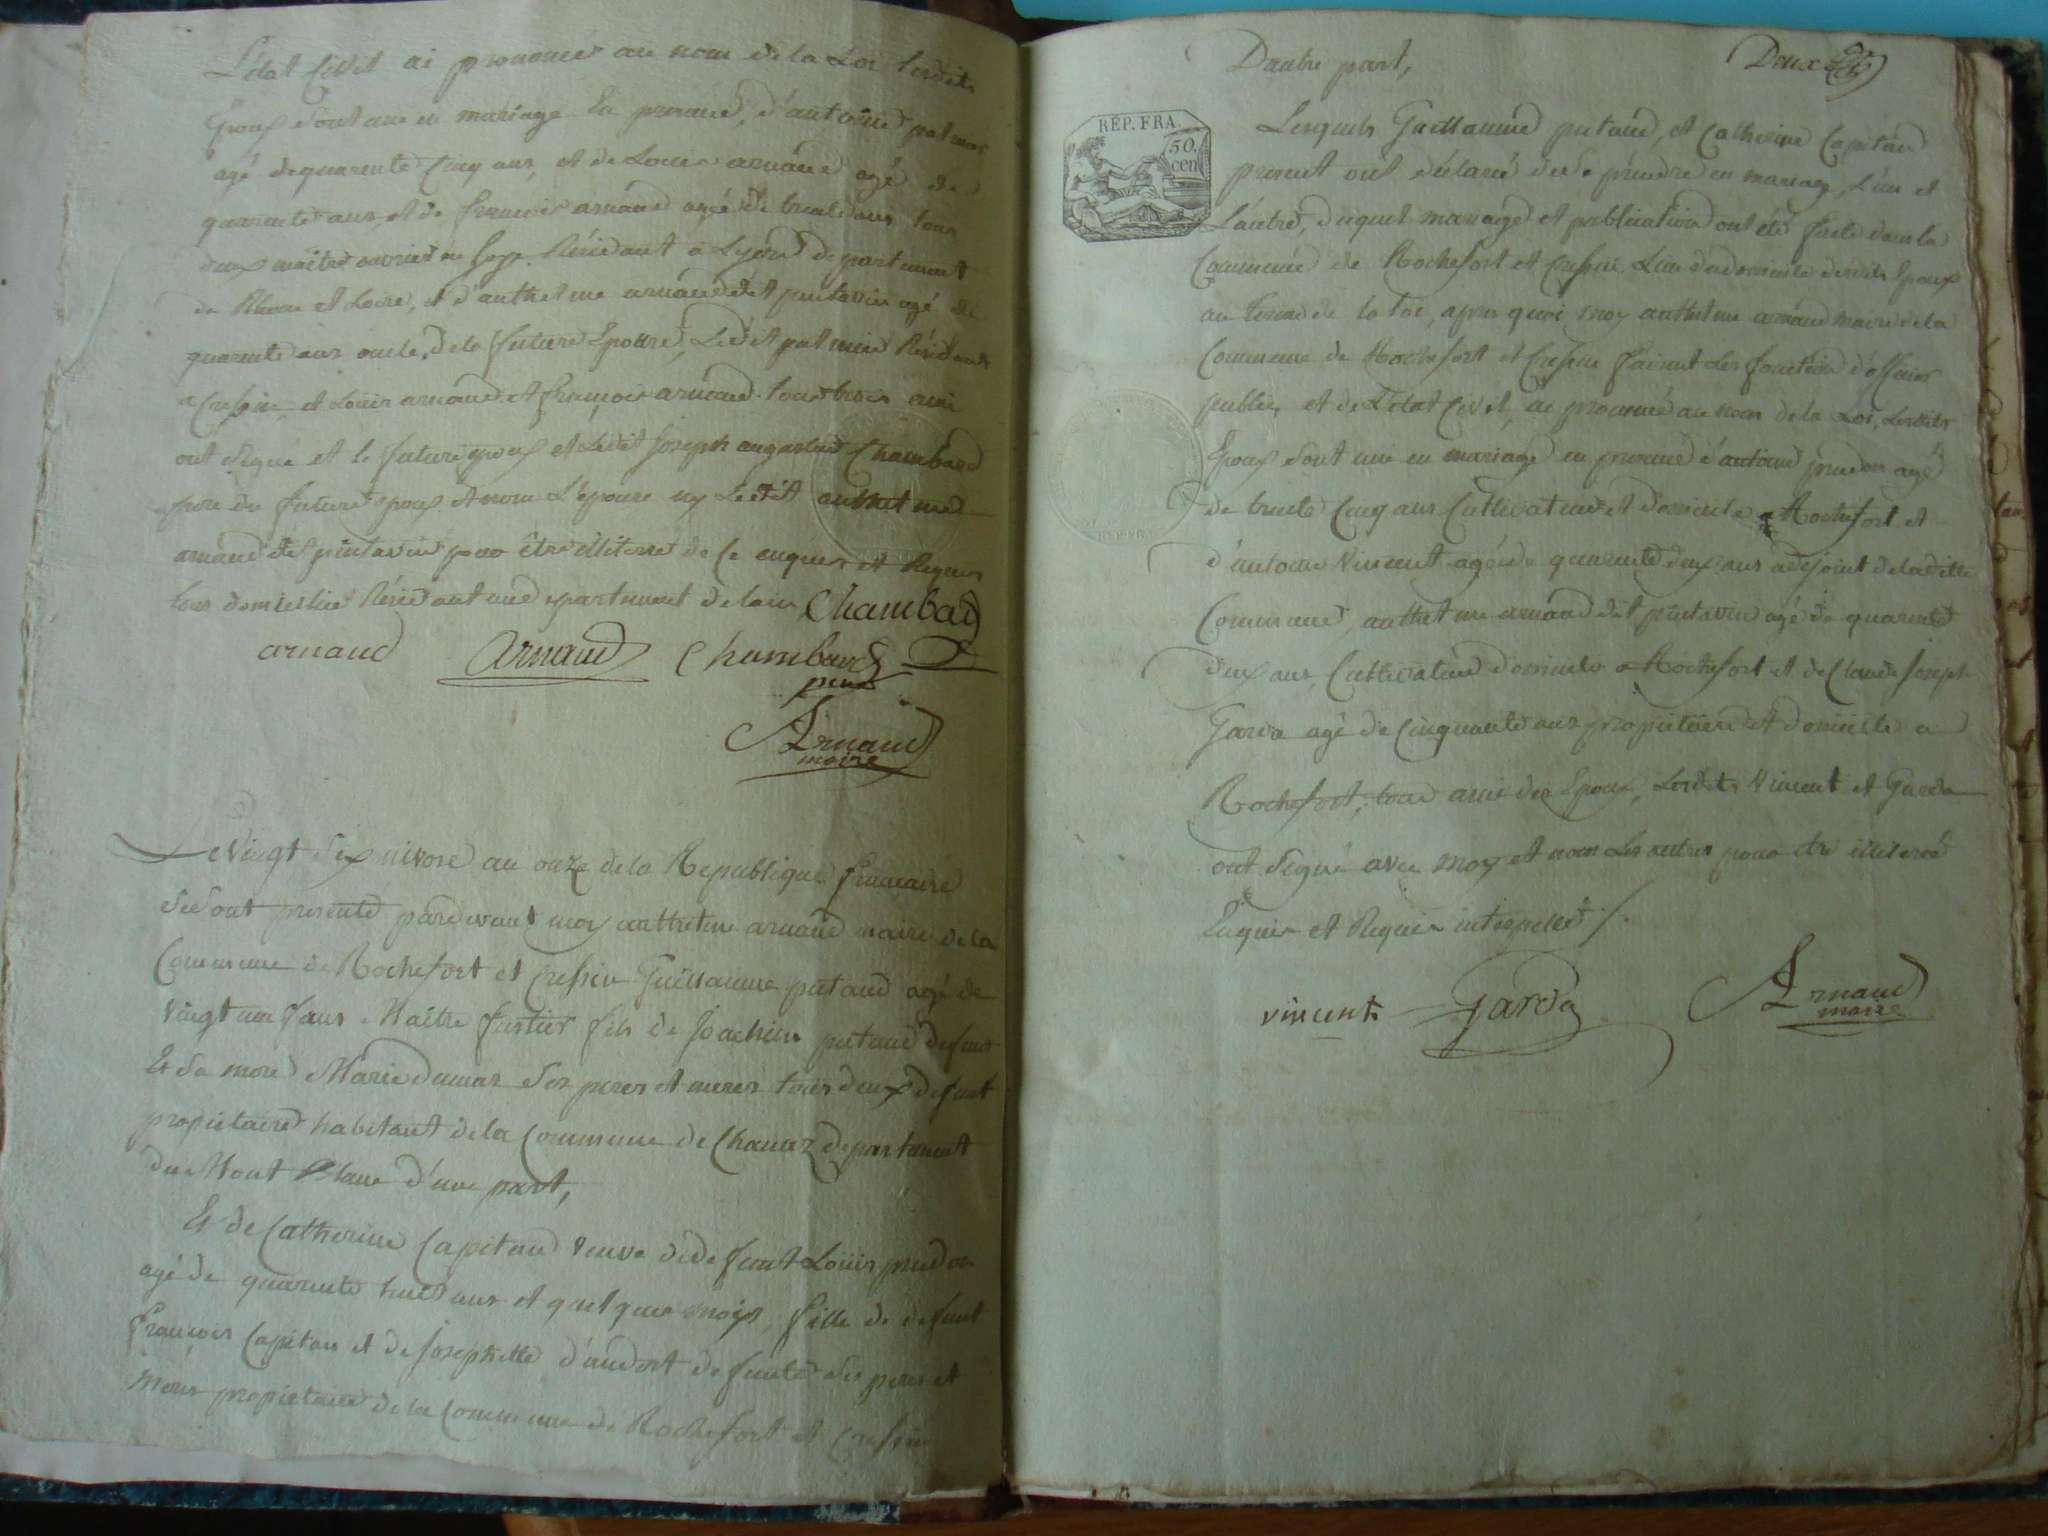 L'état Civil ai prononcé au nom de la Loi lesdits
Epoux sont unie en mariage En presence, d'antoine patmor
agé de quarente Cinq ans, et de Louis arnaud agé de
quarente ans, et de francois arnaud agé de trente ans tous
deux maître ouvrier en Résidant a Lyon departement
de Rhone et Loire, et d'anthelme arnaud dit pintavin agé de
quarente ans oncle, de la future Epouse, Ledit Résidant
a Cressin, et Louis arnaud et françois arnaud tous trois ami
ont Signé et le futur epoux et Ledit Joseph augustin Chambard
pere du futur epoux et non L'épouse ny Ledit anthelme
arnaud dit pintavin pour être illiterré de ce enquis et Requis
tous domicilié Résidant au departement de lain Chambard
arnaud Arnaud Chambard
pere
Arnaud
maire
Le Vingt Six nivose an onze de la Republique francaise
Se sont presenté pardevant moy anthelme arnaud maire de la
Commune de Rochefort et Cressin Guillaume putaud agé de
Vingt neuf ans Maître fustier fils de Joachim putaud defunt
Et de Marie dumas Ses peres et meres tous deux defunt
propriétaire habitant de la Commune de Chanaz departement
du Mont Blanc d'une part,
Et de Catherine Capitand Veuve de defunt Louis prudon
agé de quarente huit ans et quelque mois, fille de defunt
François Capitan et de Josephette d'andert defunte Ses peres et
Meres propriétaire de la Commune de Rochefort et Cressin
Dautre part,
Deux
RÉP. FRA.
50.
cen
Lesquels Guillaume putaud, et Catherine Capitand
present ont déclaré de Se prendre en mariage L'un et
L'autre, duquel mariage et publication ont été faite dans la
Commune de Rochefort et Cressin Lieu du domicile desdits Epoux
au terme de la loi, apres quoi, moy anthelme arnaud maire de la
Commune de Rochefort et Cressin faisant Les fonction d'officier
public, et de L'état Civil, ai prononcé au nom de la Loi, Lesdits
Epoux Sont unie en mariage en presence d'antoine prudon agé
de trente Cinq ans Cultivateur et domicilié a Rochefort et
d'antoine Vincent agé de quarente deux ans adjoint de la ditte
Commune, anthelme arnaud dit pintavin agé de quarente
deux ans, Cultivateur domicilié a Rochefort et de Claude Joseph
Garda agé de Cinquante ans propriétaire et domicilié a
Rochefort, tous ami des Epoux, Lesdits Vincent et Garda
ont Signé avec moy et non Les autres pour être illiterré
Enquis et Requis interpellé
vincent Garda Arnaud
maire